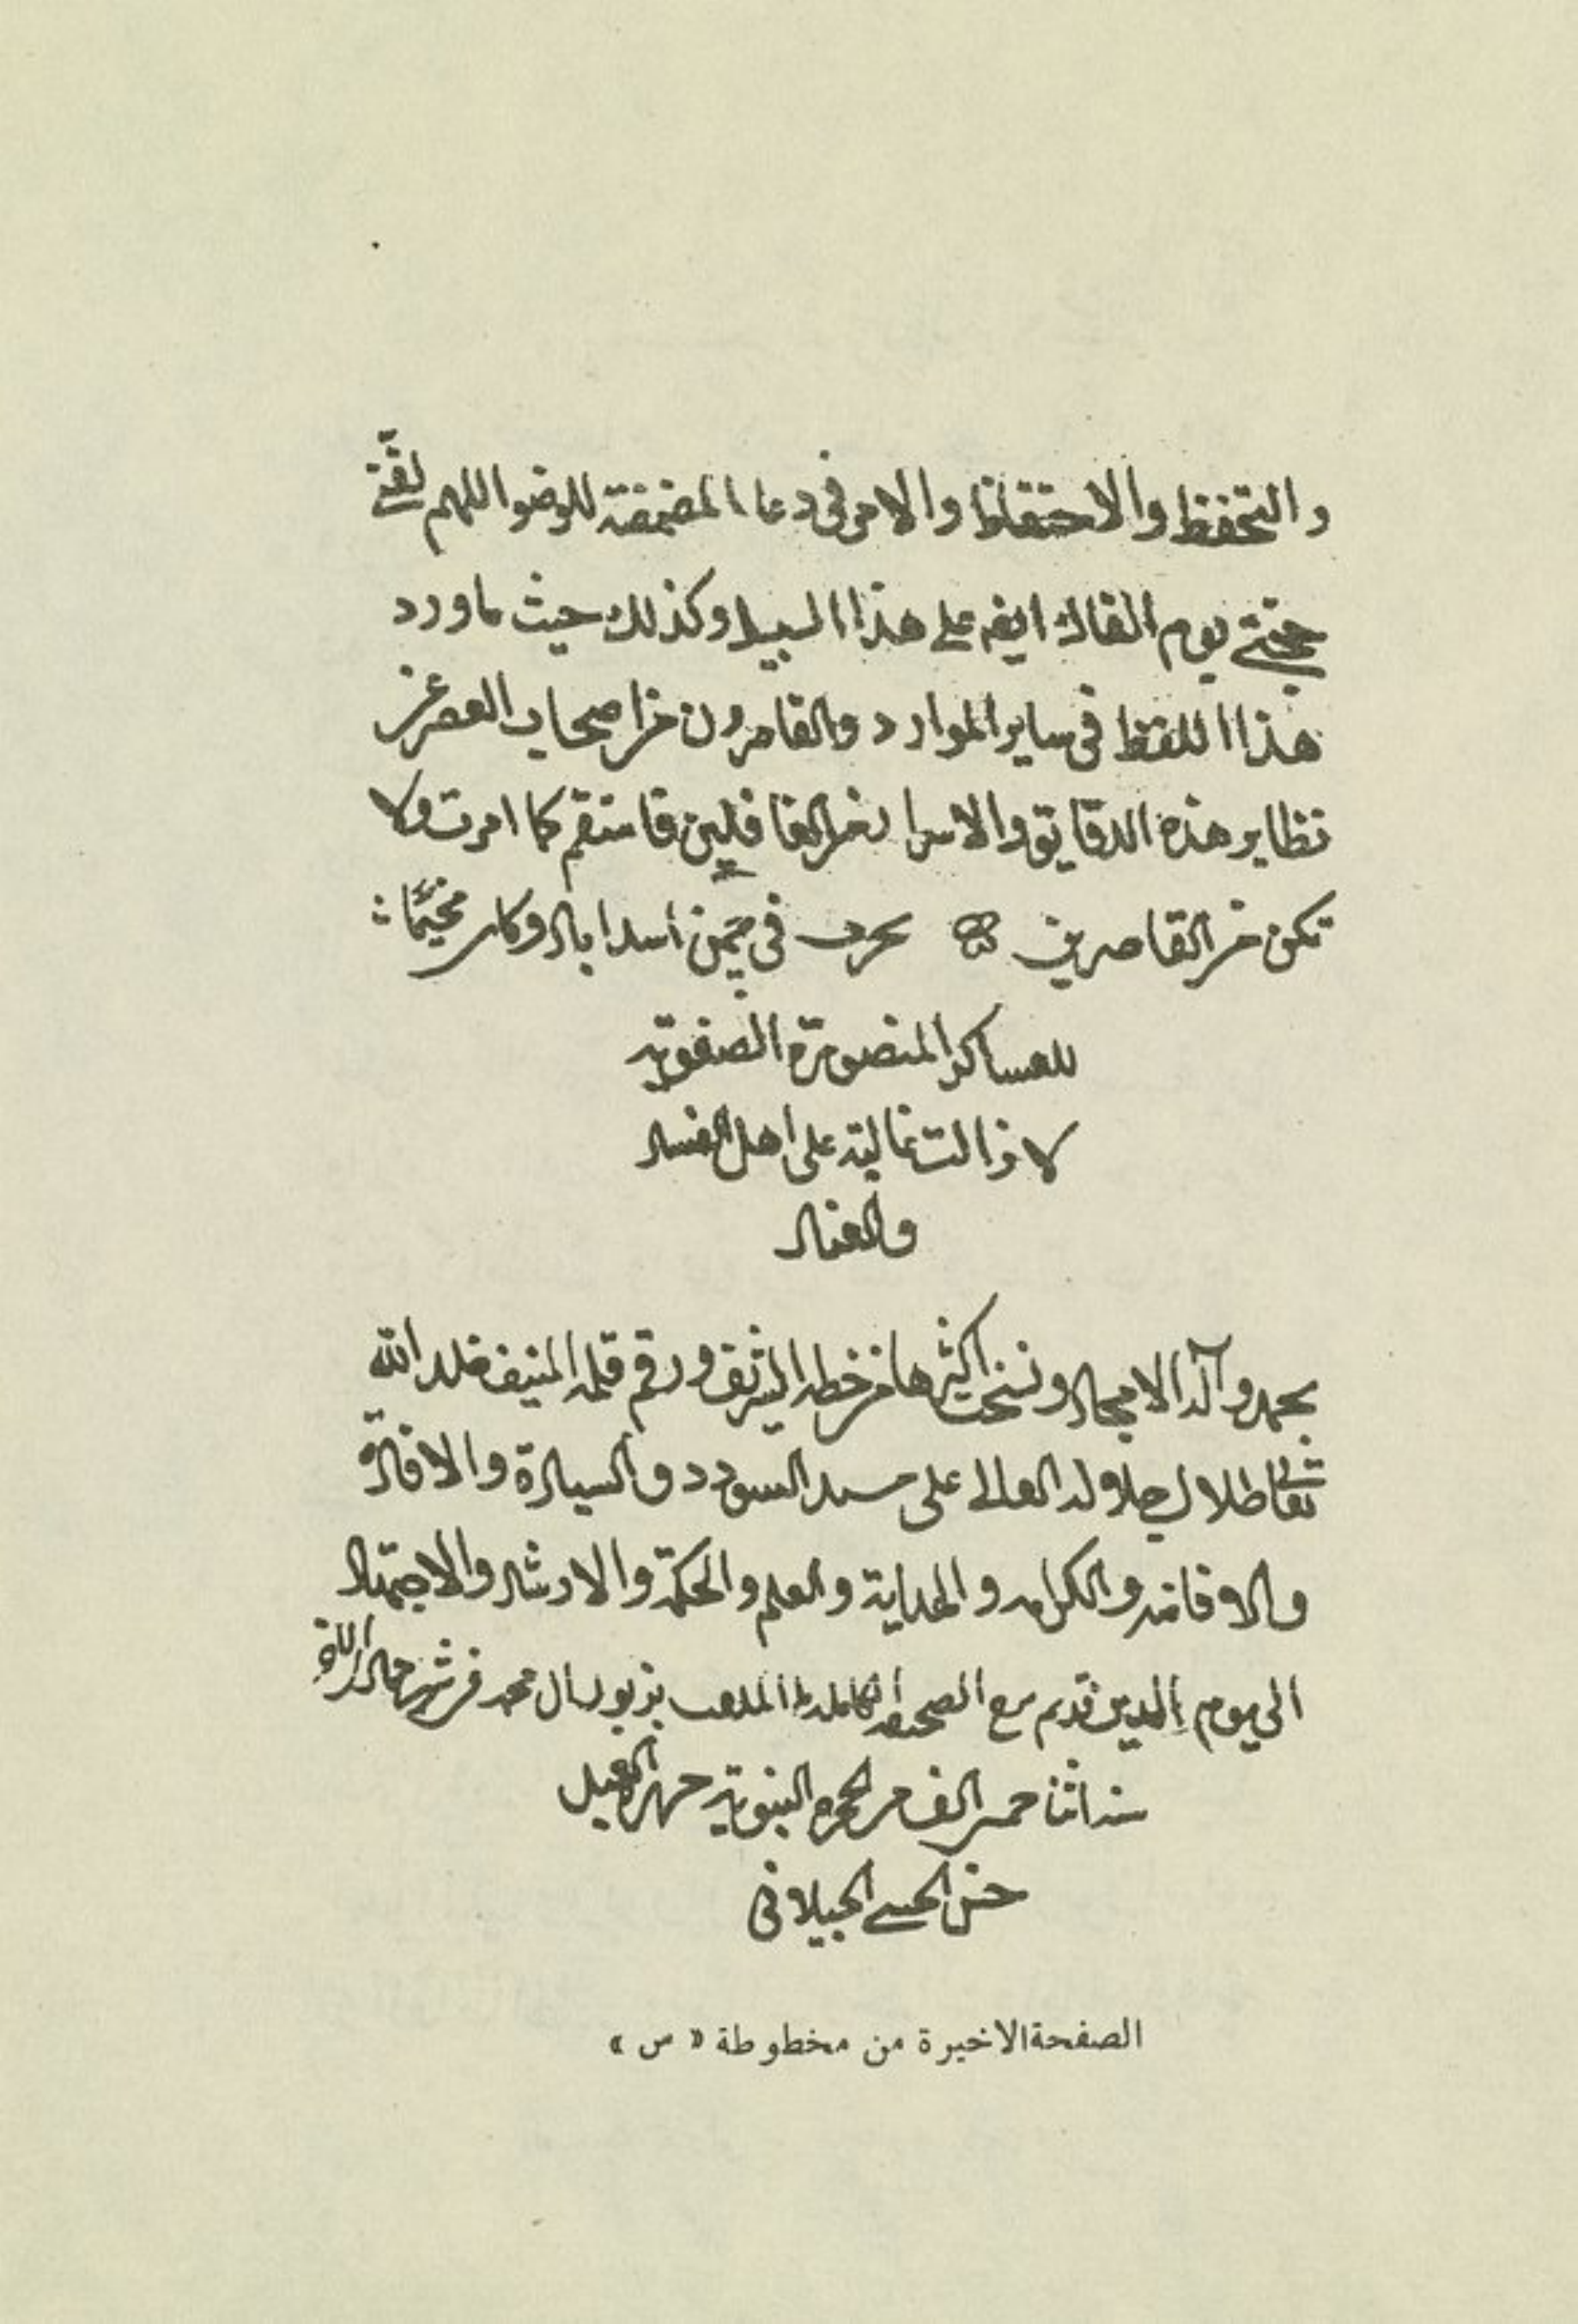 والتحفظ والاحتفاظ والامر في دعاء المضمضة للوضوء اللهم لقّني
حجتي يوم القاك ايضه على هذا السبيل وكذلك حيث ماورد
هذا اللفظ في ساير الموارد والقاصرون من اصحاب العصر عن
نظاير هذه الدقايق والاسرار من الغافلين فاستقم كما امرت ولا
تكن من القاصرين في اسداباد وكان مخيّمًا
للعساكر المنصورة الصفوية
لا زالت غالبة على اهل الفساد
والعناد
بمحمد وآله الامجاد ونسخت اكثرها من خطه الشريف ورقم قلمه المنيف خلد الله
تعالى ظلال جلاله العالى على مسند السودد والسيادة والافادة
والافاضه والكرامه والهداية والعلم والحكمة والارشاد والاجتهاد
الى يوم الدين مع الصحيفة الكاملة الملقب بزبور ال محمد في شهر جمادى
سنه اثنا الف من الهجرة النبوية حرره العبد
حسن الحسني الجيلاني
الصفحة الاخيرة من مخطوطة « س »